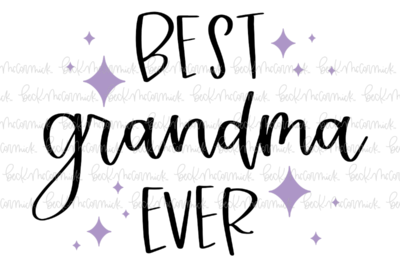 BEST
grandma
EVER